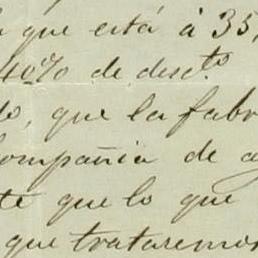 que está á 35,
40% de desc.to
que la fabr
compañia de a
te que lo que
que trataremos